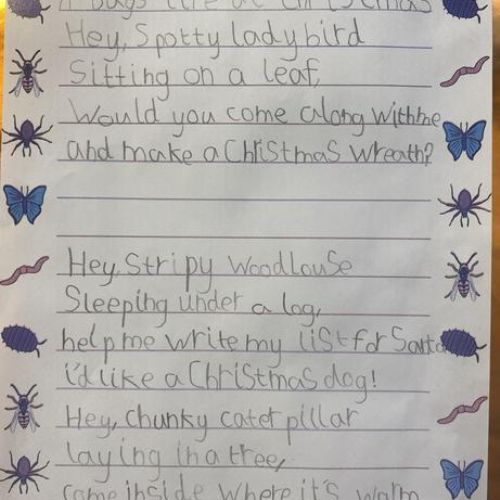 A bugs life at Christmas
Hey, Spotty ladybird
Sitting on a leaf,
Would you come along with me
and make a Christmas wreath?
Hey, Stripy woodlouse
Sleeping under a log,
help me write my list for Santa
i'd like a Christmas dog!
Hey, Chunky caterpillar
laying in a tree,
come inside where it's warm